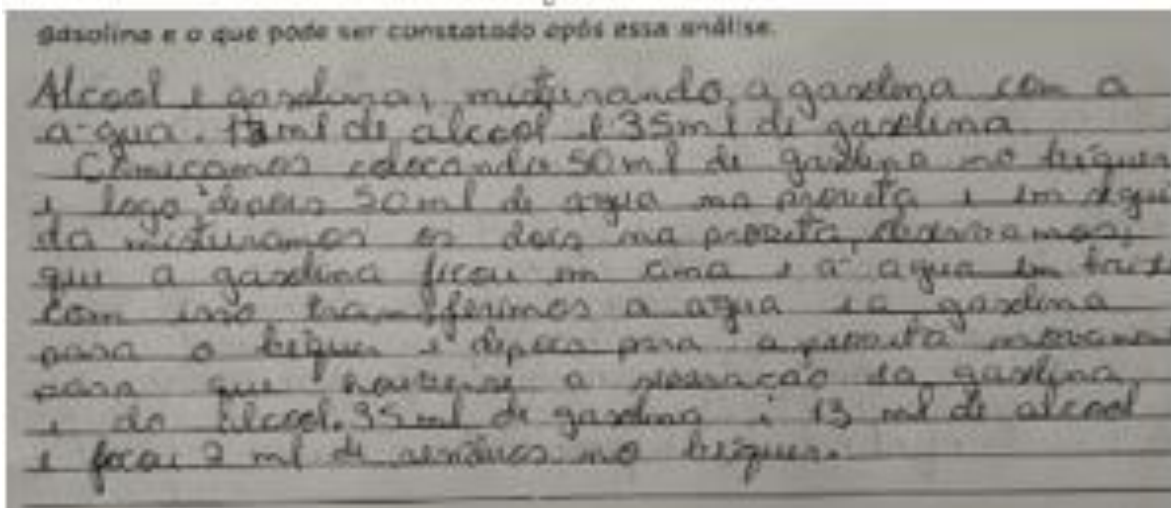 gasolina e o que pode ser constatado após essa análise.
Alcool e gasolina, misturando a gasolina com a
a-gua. 13 ml de alcool e 35 ml de gasolina
Começamos colocando 50 ml de gasolina no béquer
e logo depois 50 ml de agua na proveta e em segui
da misturamos os dois na proveta, observamos,
que a gasolina ficou em cima e a agua em baixo
com isso transferimos a agua e a gasolina
para o béquer e depois para a proveta novamente
para que houvesse a separação da gasolina
e do alcool. 35 ml de gasolina e 13 ml de alcool
e ficou 2 ml de resíduos no béquer.